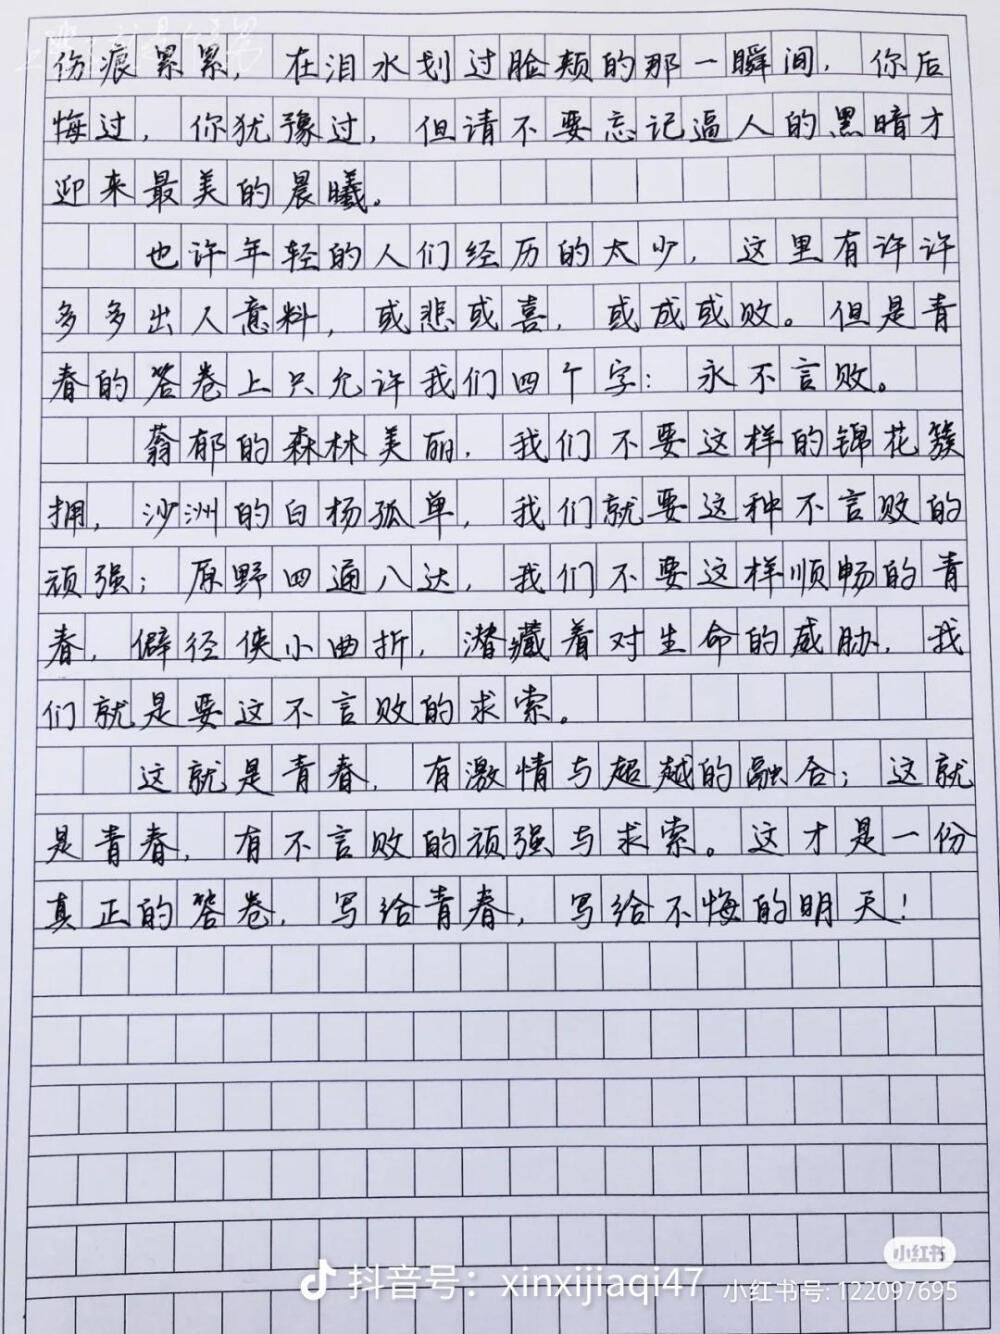 伤痕累累，在泪水划过脸颊的那一瞬间，你后
悔过，你犹豫过，但请不要忘记逼人的黑暗才
迎来最美的晨曦。
也许年轻的人们经历的太少，这里有许许
多多出人意料，或悲或喜，或成或败。但是青
春的答卷上只允许我们四个字：永不言败。
蓊郁的森林美丽，我们不要这样的锦花簇
拥，沙洲的白杨孤单，我们就要这种不言败的
顽强；原野四通八达，我们不要这样顺畅的青
春，僻径侠小曲折，潜藏着对生命的威胁，我
们就是要这不言败的求索。
这就是青春，有激情与超越的融合；这就
是青春，有不言败的顽强与求索。这才是一份
真正的答卷，写给青春，写给不悔的明天！
小红书
抖音号：xinxijiaqi47
小红书号: 122097695